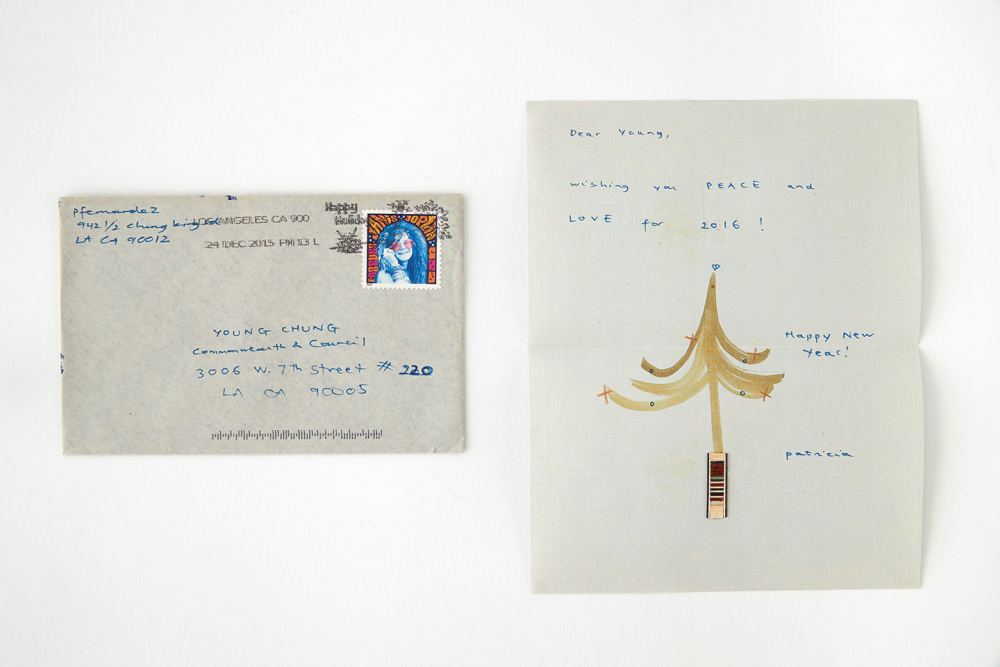 pfernandez
942 1/2 chung king rd
LA CA 90012
LOS ANGELES CA 900
24 DEC 2015 PM 13 L
Happy
Holidays
JANIS JOPLIN
FOREVER
USA
YOUNG CHUNG
Commonwealth & Council
3006 W. 7th Street # 220
LA CA 90005
Dear Young,
wishing you PEACE and
LOVE for 2016 !
Happy New
Year!
patricia